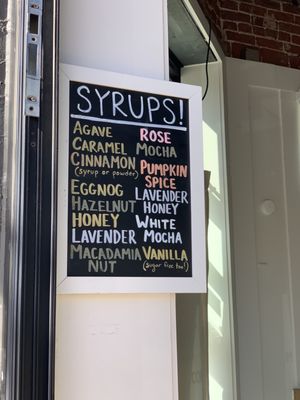 SYRUPS!
AGAVE
CARAMEL
CINNAMON
(syrup or powder)
EGGNOG
HAZELNUT
HONEY
LAVENDER
MACADAMIA
NUT
ROSE
MOCHA
PUMPKIN
SPICE
LAVENDER
HONEY
WHITE
MOCHA
VANILLA
(sugar free too!)